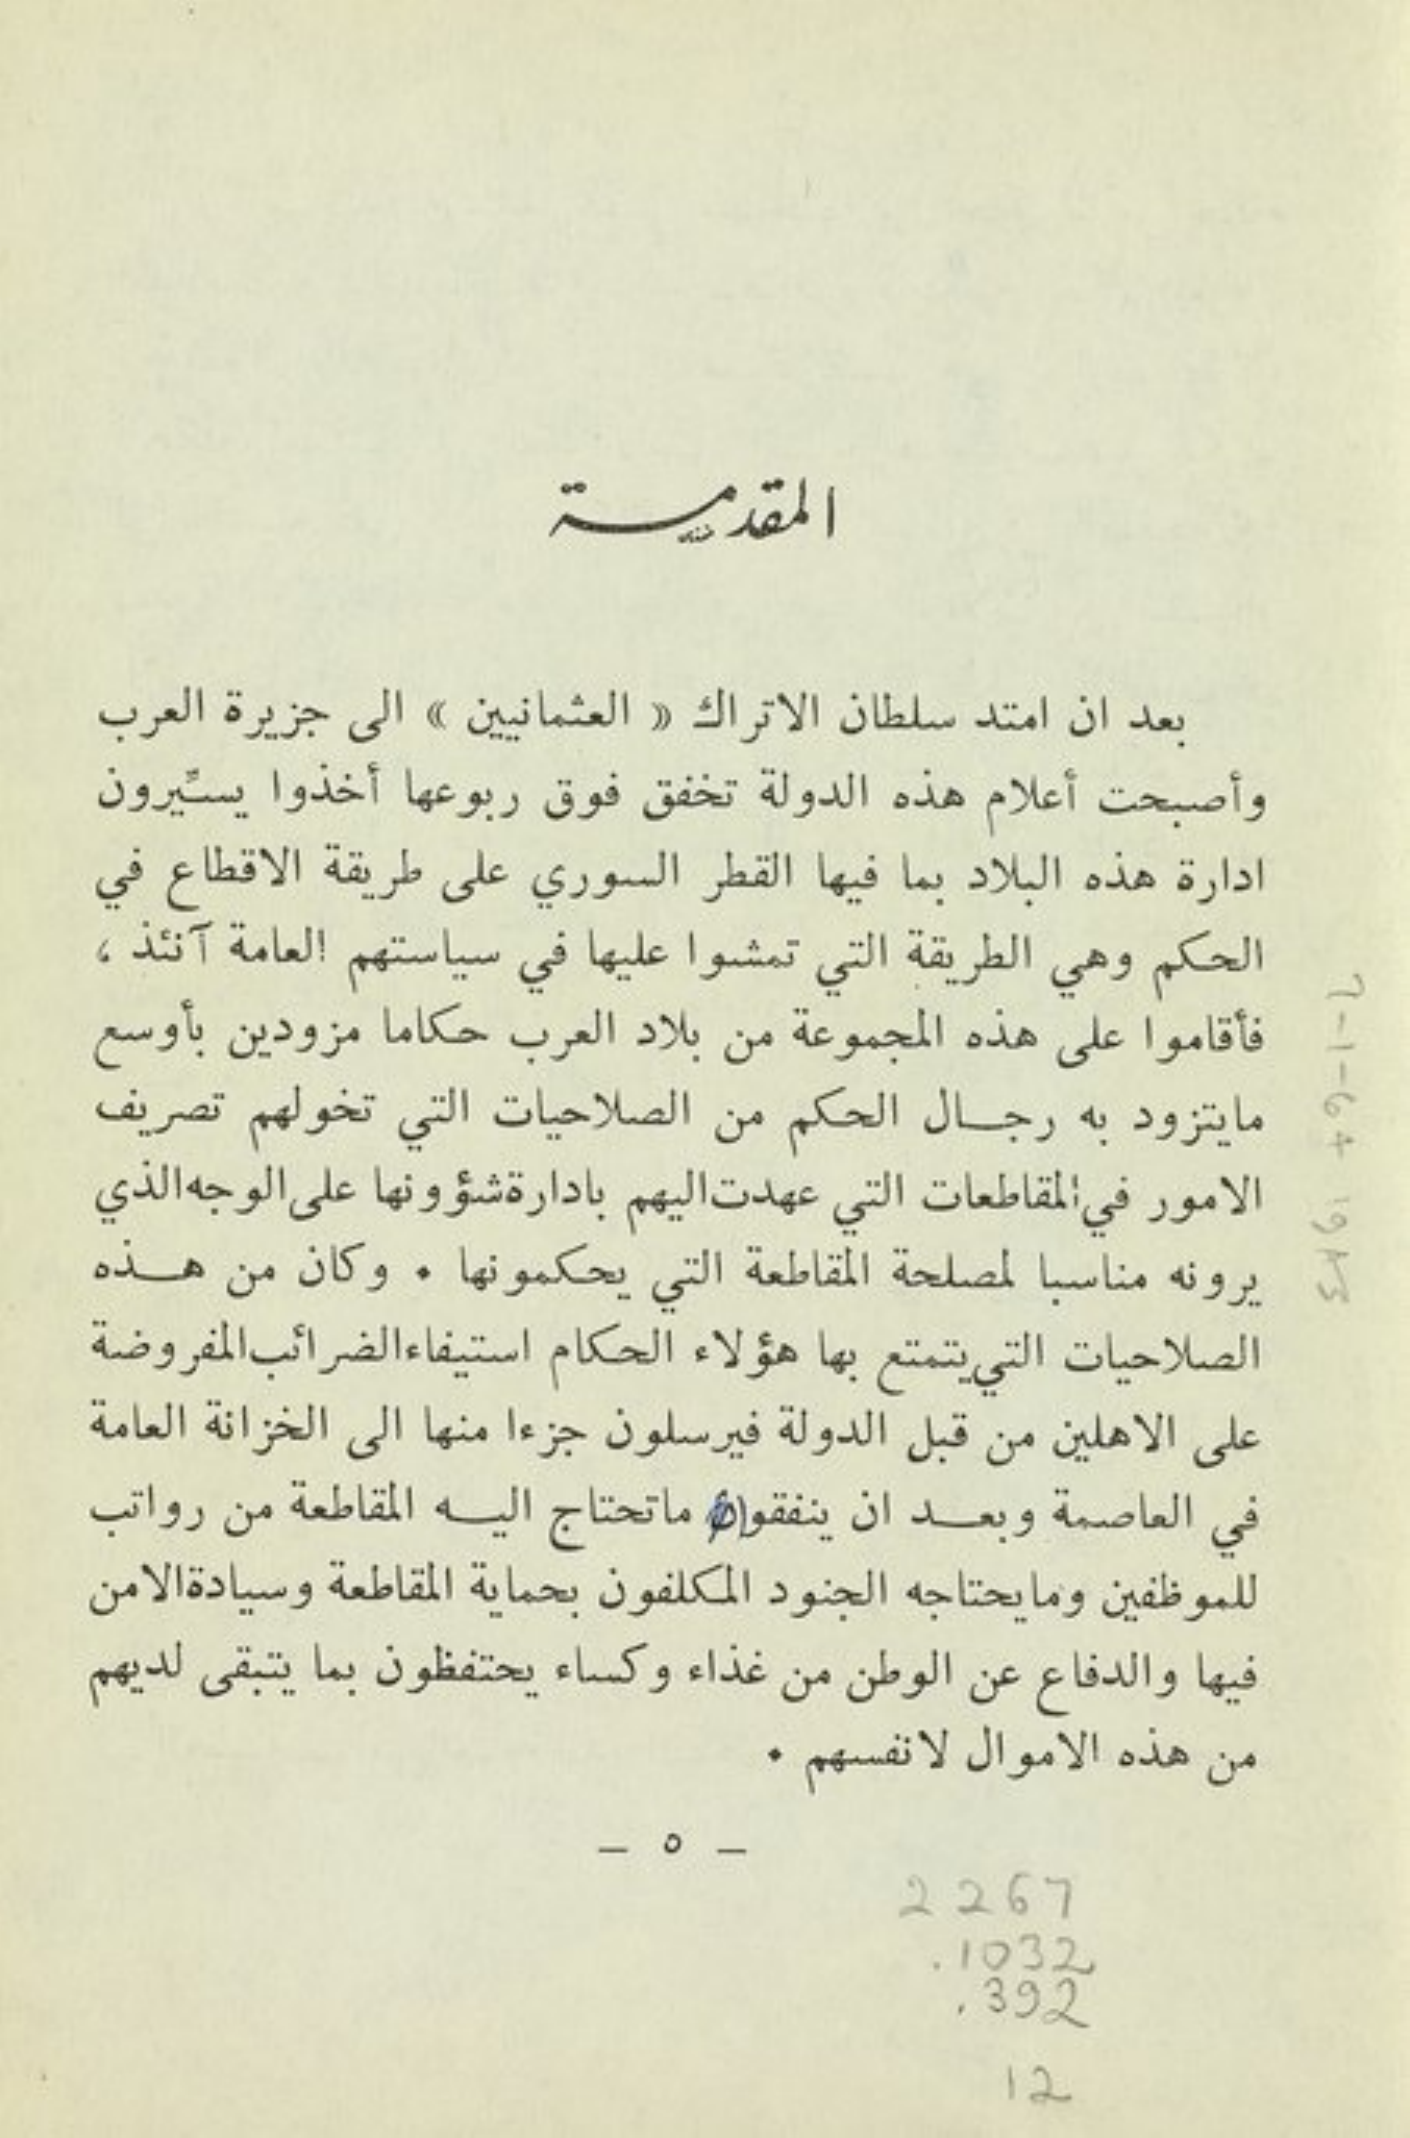 المقدمة
بعد ان امتد سلطان الاتراك « العثمانيين » الى جزيرة العرب
وأصبحت أعلام هذه الدولة تخفق فوق ربوعها أخذوا يسيِّرون
ادارة هذه البلاد بما فيها القطر السوري على طريقة الاقطاع في
الحكم وهي الطريقة التي تمشوا عليها في سياستهم العامة آنئذ ،
فأقاموا على هذه المجموعة من بلاد العرب حكاما مزودين بأوسع
مايتزود به رجـــال الحكم من الصلاحيات التي تخولهم تصريف
الامور في المقاطعات التي عهدت اليهم بادارة شؤونها على الوجه الذي
يرونه مناسبا لمصلحة المقاطعة التي يحكمونها . وكان من هـــذه
الصلاحيات التي يتمتع بها هؤلاء الحكام استيفاء الضرائب المفروضة
على الاهلين من قبل الدولة فيرسلون جزءا منها الى الخزانة العامة
في العاصمة وبعـــد ان ينفقوا ماتحتاج اليـــه المقاطعة من رواتب
للموظفين ومايحتاجه الجنود المكلفون بحماية المقاطعة وسيادة الامن
فيها والدفاع عن الوطن من غذاء وكساء يحتفظون بما يتبقى لديهم
من هذه الاموال لانفسهم .
— ٥ —
2267
.1032
.392
12